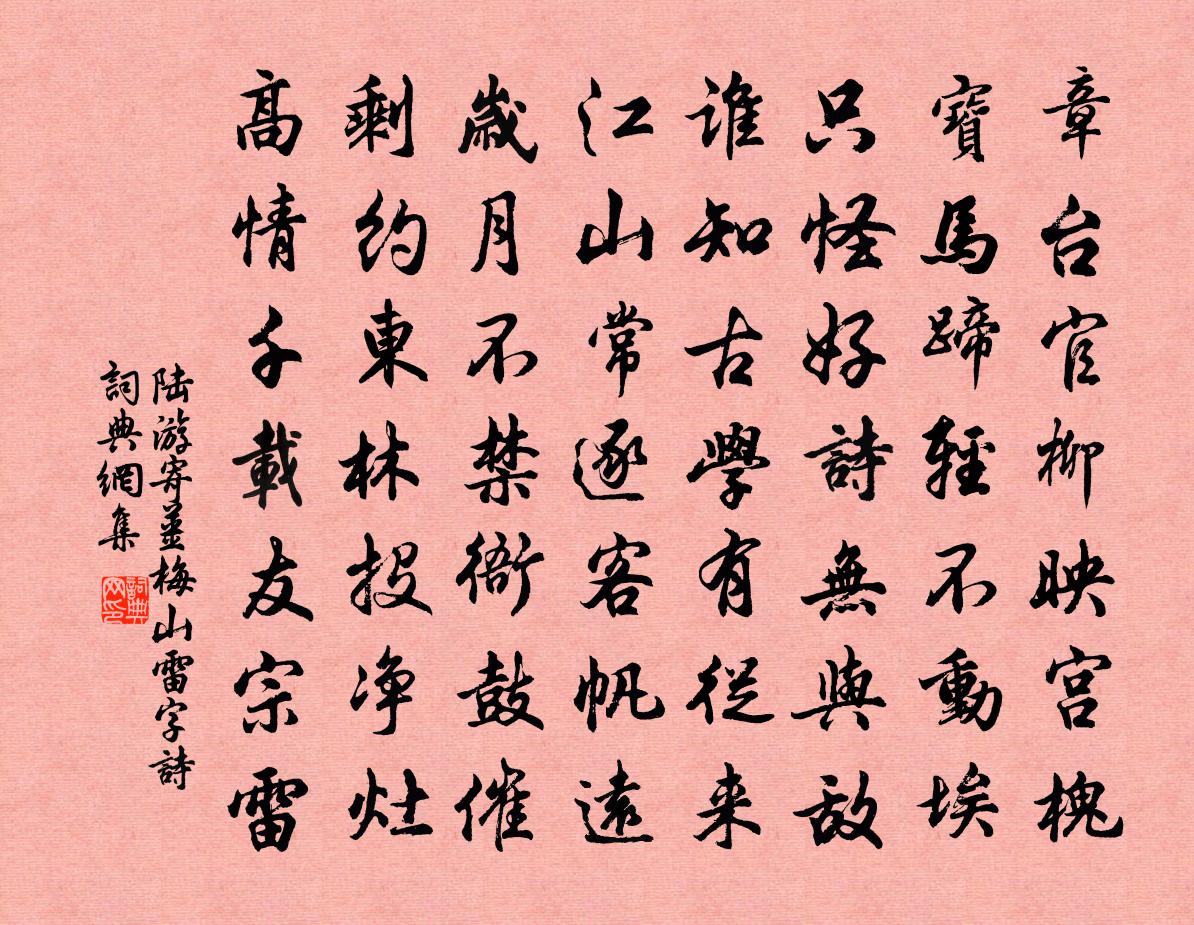 章台官柳映宫槐
寶馬蹄輕不動埃
只怪好詩無與敌
谁知古學有従来
江山常逐客帆遠
歳月不禁衙鼓催
剩約東林投净灶
髙情千載友宗雷
陆游寄姜梅山雷字詩
詞典網集